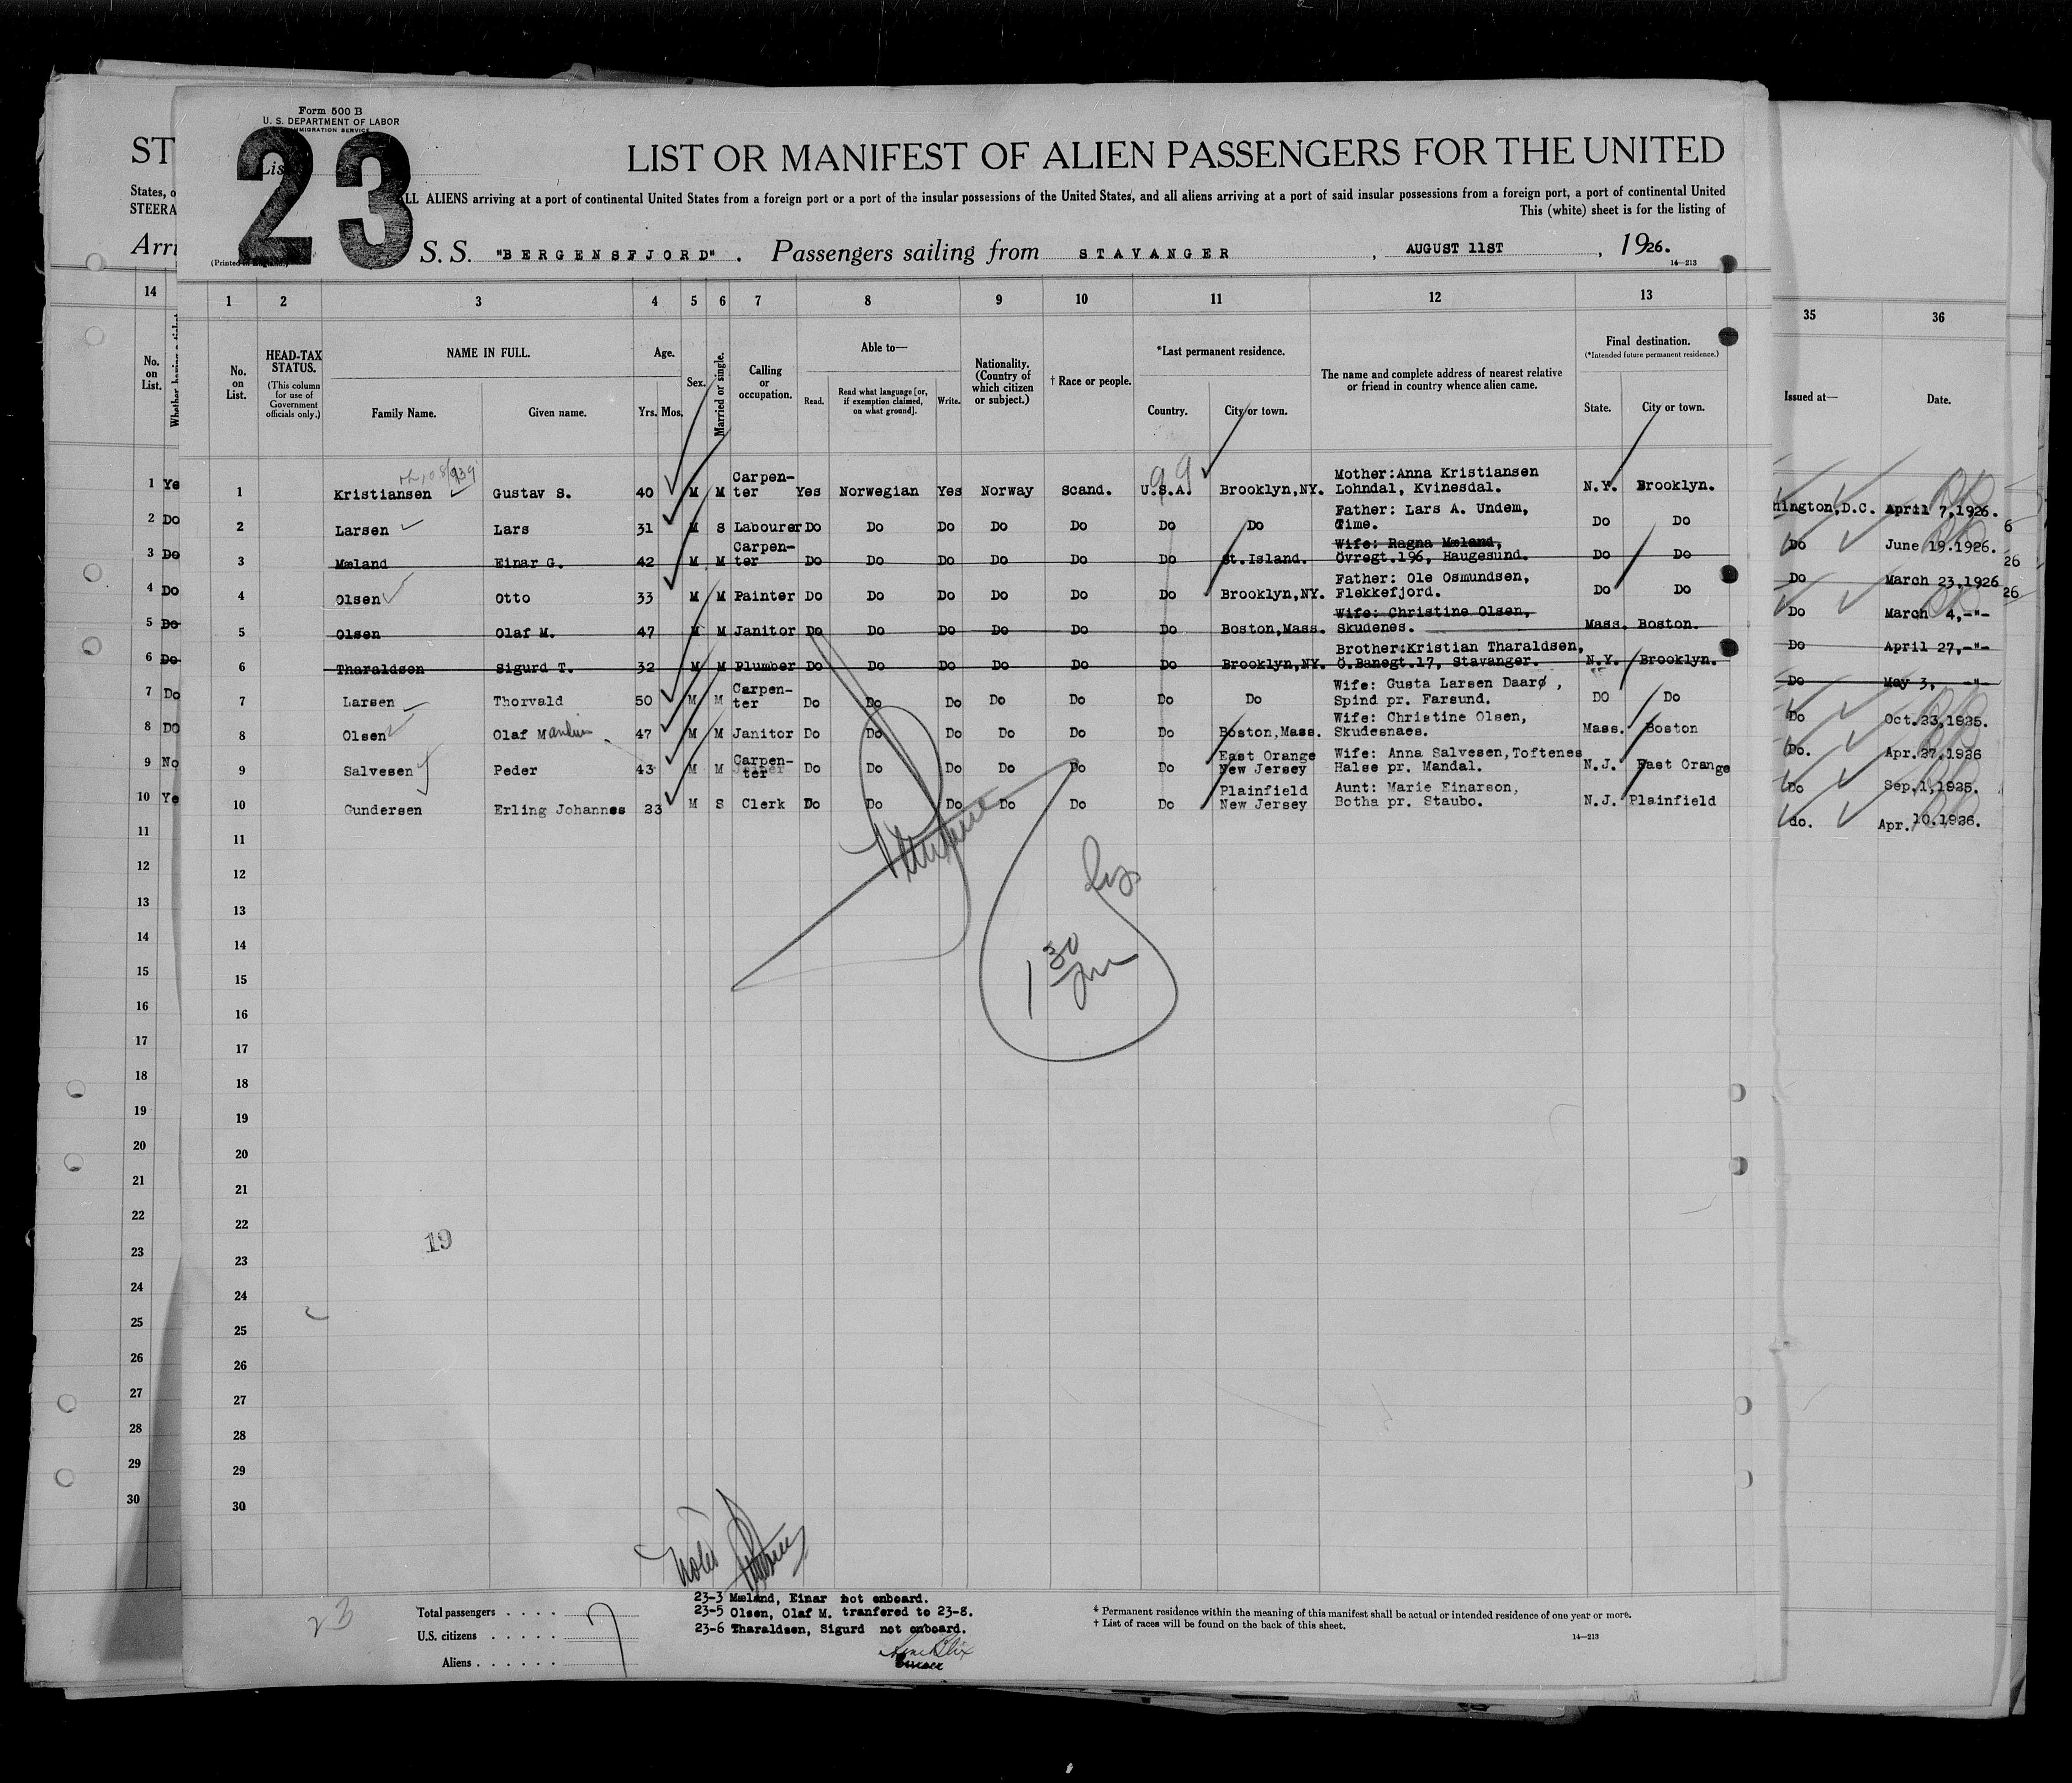 Form 500 B
U. S. DEPARTMENT OF LABOR
IMMIGRATION SERVICE
23
LIST OR MANIFEST OF ALIEN PASSENGERS FOR THE UNITED
ST
ALL ALIENS arriving at a port of continental United States from a foreign port or a port of the insular possessions of the United States, and all aliens arriving at a port of said insular possessions from a foreign port, a port of continental United
States, o
This (white) sheet is for the listing of
STEERA
Arri
S. S. "BERGENSFJORD". Passengers sailing from STAVANGER, AUGUST 11ST, 1926.
14—213
14 1 2 3 4 5 6 7 8 9 10 11 12 13 35 36
No. on List.
No. on List.
HEAD-TAX STATUS.
(This column for use of Government officials only.)
NAME IN FULL.
Family Name. Given name.
Age.
Yrs. Mos.
Sex.
Married or single.
Calling or occupation.
Able to—
Read. Read what language [or, if exemption claimed, on what ground]. Write.
Nationality. (Country of which citizen or subject.)
† Race or people.
*Last permanent residence.
Country. City or town.
The name and complete address of nearest relative or friend in country whence alien came.
Final destination.
(*Intended future permanent residence.)
State. City or town.
Issued at— Date.
1 Ye 1 Kristiansen Gustav S. 40 M M Carpen-ter Yes Norwegian Yes Norway Scand. U.S.A. Brooklyn,NY. Mother:Anna Kristiansen Lohndal, Kvinesdal. N.Y. Brooklyn. hington,D.C. April 7,1926.
2 Do 2 Larsen Lars 31 M S Labourer Do Do Do Do Do Do Do Father: Lars A. Undem, Time. Do Do Do June 19.1926.
3 Do 3 Mæland Einar G. 42 M M Carpen-ter Do Do Do Do Do Do St.Island. Wife: Ragna Mæland, Övregt.196, Haugesund. Do Do Do March 23,1926
4 Do 4 Olsen Otto 33 M M Painter Do Do Do Do Do Do Brooklyn,NY. Father: Ole Osmundsen, Flekkefjord. Do Do Do March 4,-"-
5 Do 5 Olsen Olaf M. 47 M M Janitor Do Do Do Do Do Do Boston,Mass. Wife: Christine Olsen, Skudenes. Mass. Boston. Do April 27,-"-
6 Do 6 Tharaldsen Sigurd T. 32 M M Plumber Do Do Do Do Do Do Brooklyn,NY. Brother:Kristian Tharaldsen, Ö.Banegt.17, Stavanger. N.Y. Brooklyn. Do May 3, -"-
7 Do 7 Larsen Thorvald 50 M M Carpen-ter Do Do Do Do Do Do Do Wife: Gusta Larsen Daarø, Spind pr. Farsund. DO Do Do Oct.23,1925.
8 DO 8 Olsen Olaf M 47 M M Janitor Do Do Do Do Do Do Boston,Mass. Wife: Christine Olsen, Skudesnaes. Mass. Boston Do. Apr.27.1926
9 No 9 Salvesen Peder 43 M M Carpen-ter Do Do Do Do Do Do East Orange New Jersey Wife: Anna Salvesen,Toftenes Halse pr. Mandal. N.J. East Orange Do Sep.1,1925.
10 Ye 10 Gundersen Erling Johannes 23 M S Clerk Do Do Do Do Do Do Plainfield New Jersey Aunt: Marie Einarson, Botha pr. Staubo. N.J. Plainfield do. Apr.10.1926.
11 11
12 12
13 13
14 14
15 15
16 16
17 17
18 18
19 19
20 20
21 21
22 22
19
23 23
24 24
25 25
26 26
27 27
28 28
29 29
30 30
1 30
23
Total passengers . . . .
U.S. citizens . . . . .
Aliens . . . . . .
7
23-3 Mæland, Einar not onboard.
23-5 Olsen, Olaf M. tranfered to 23-8.
23-6 Tharaldsen, Sigurd not onboard.
* Permanent residence within the meaning of this manifest shall be actual or intended residence of one year or more.
† List of races will be found on the back of this sheet.
14—213